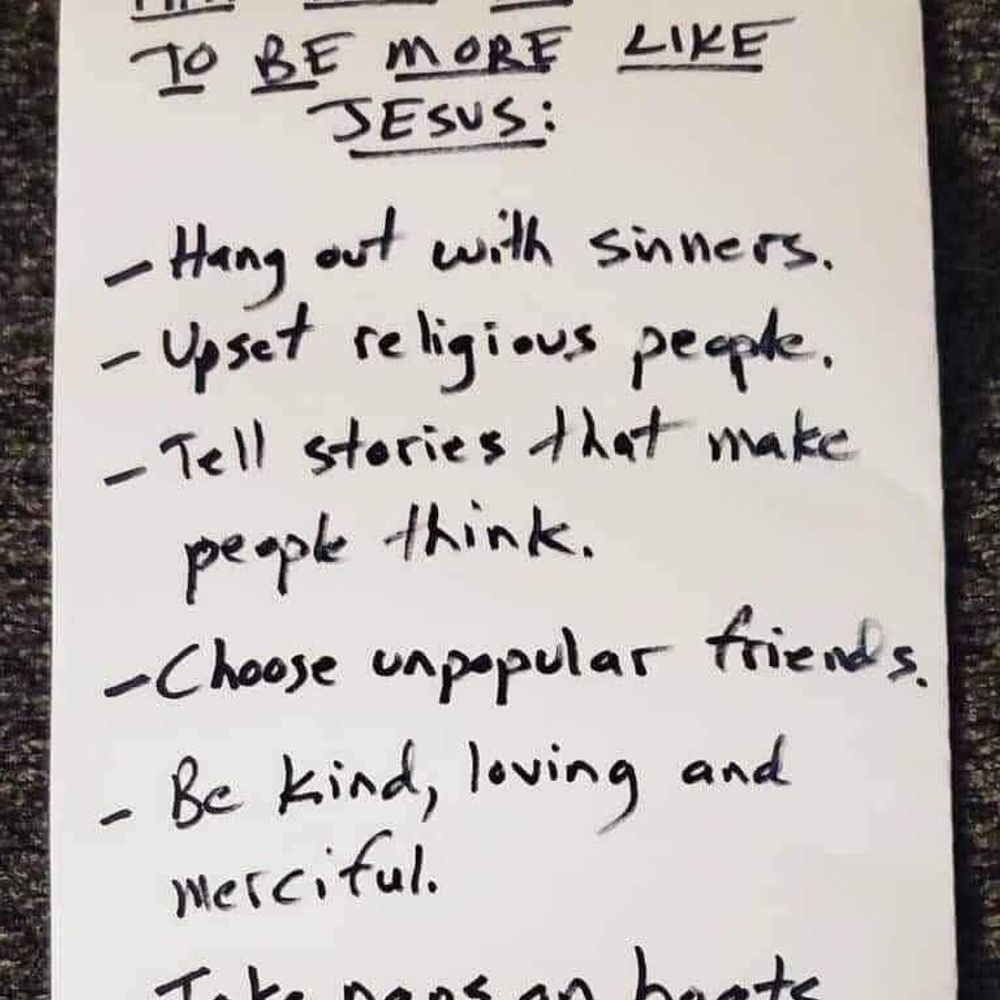 TO BE MORE LIKE
JESUS:
- Hang out with sinners.
- Upset religious people.
- Tell stories that make
people think.
- Choose unpopular friends.
- Be kind, loving and
merciful.
Take naps on boats